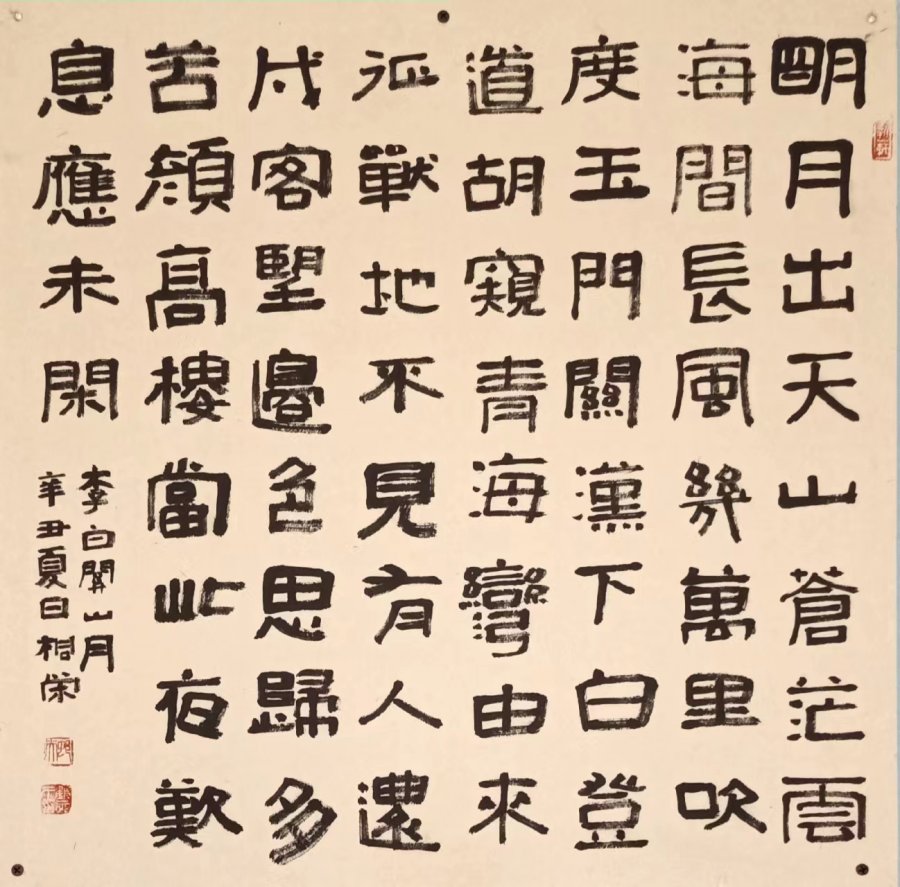 明月出天山蒼茫雲
海間長風幾萬里吹
度玉門關漢下白登
道胡窺青海灣由來
征戰地不見有人還
戍客望邊色思歸多
苦顏高樓當此夜歎
息應未閑
李白關山月
辛丑夏日